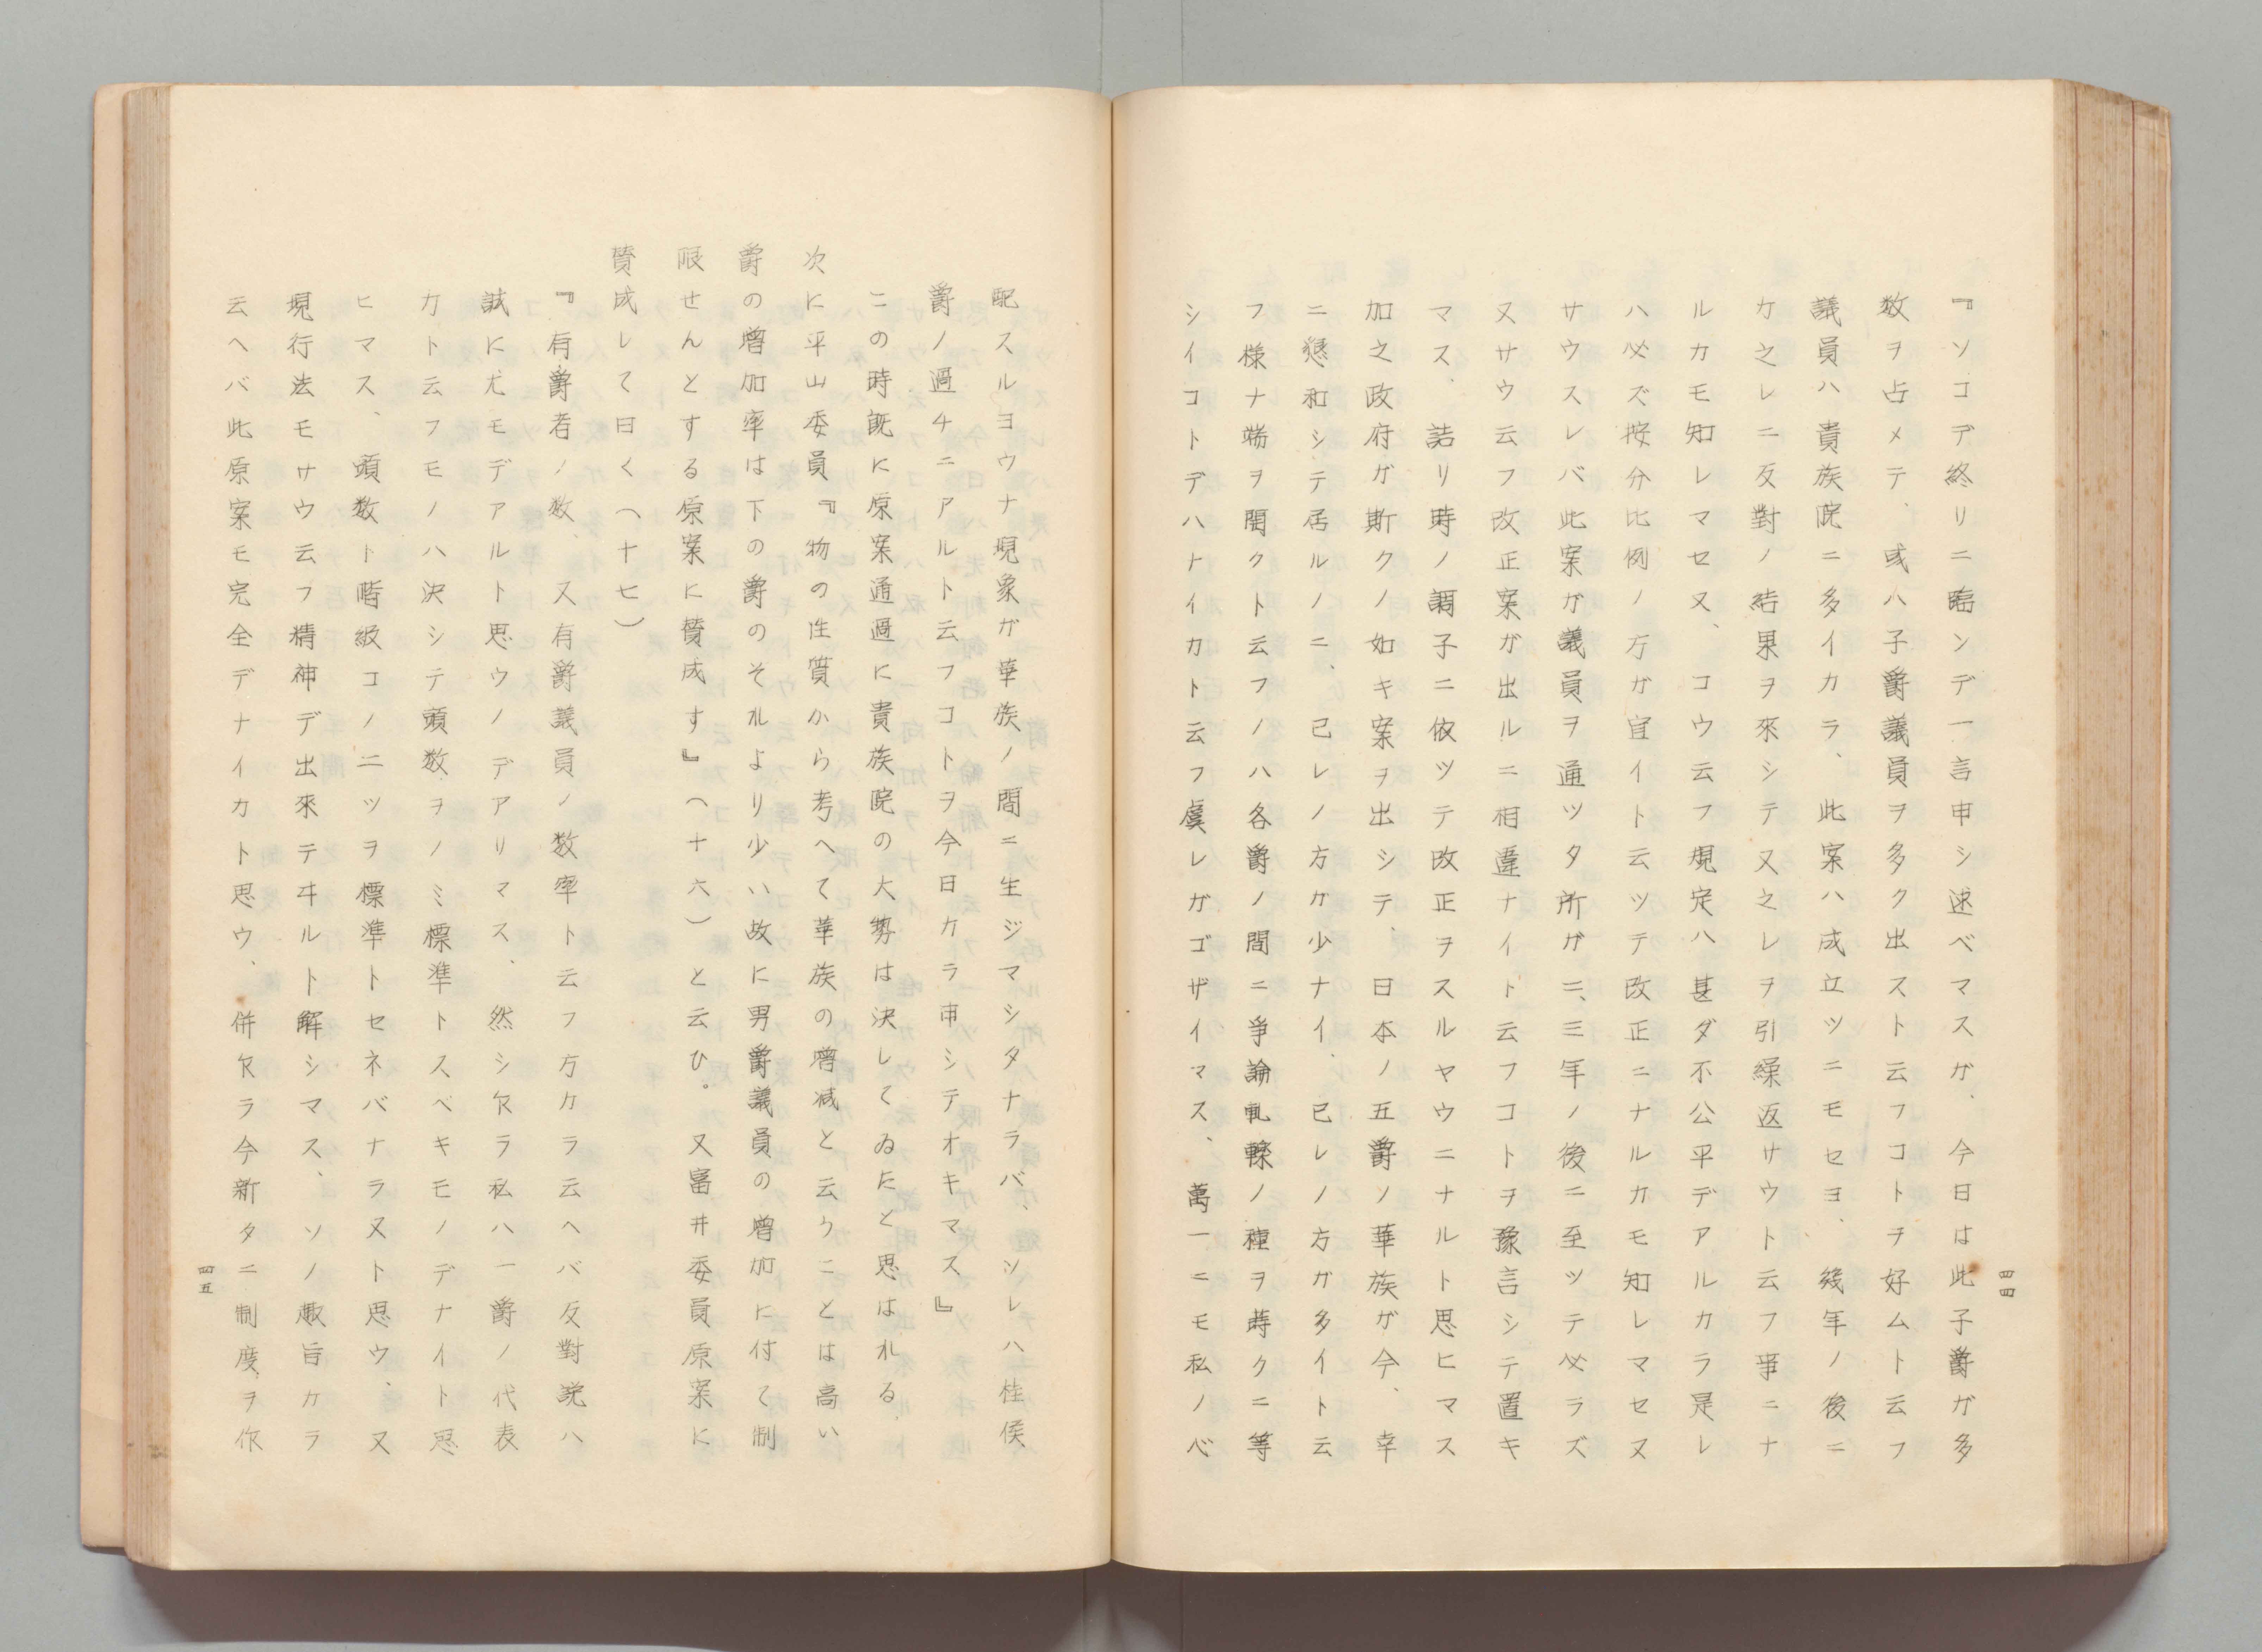 『ソコデ終リニ臨ンデ一言申シ述ベマスガ、今日は此子爵ガ多
数ヲ占メテ、或ハ子爵議員ヲ多ク出スト云フコトヲ好ムト云フ
議員ハ貴族院ニ多イカラ、此案ハ成立ツニモセヨ、幾年ノ後ニ
カ之レニ反對ノ結果ヲ來シテ又之レヲ引繰返サウト云フ事ニナ
ルカモ知レマセヌ、コウ云フ規定ハ甚ダ不公平デアルカラ是レ
ハ必ズ按分比例ノ方ガ宜イト云ツテ改正ニナルカモ知レマセヌ
サウスレバ此案ガ議員ヲ通ツタ所ガ二、三年ノ後ニ至ツテ必ラズ
又サウ云フ改正案ガ出ルニ相違ナイト云フコトヲ豫言シテ置キ
マス、詰リ時ノ調子ニ依ツテ改正ヲスルヤウニナルト思ヒマス
加之政府ガ斯クノ如キ案ヲ出シテ、日本ノ五爵ノ華族ガ今、幸
ニ懇和シテ居ルノニ、己レノ方ガ少ナイ、已レノ方ガ多イト云
フ様ナ端ヲ開クト云フノハ各爵ノ間ニ爭論軋轢ノ種ヲ蒔クニ等
シイコトデハナイカト云フ虞レガゴザイマス、萬一ニモ私ノ心
四四
配スルヨウナ現象ガ華族ノ間ニ生ジマシタナラバ、ソレハ桂侯
爵ノ過チニアルト云フコトヲ今日カラ申シテオキマス』
この時既に原案通過に貴族院の大勢は決してゐたと思はれる、
次に平山委員『物の性質から考へて華族の増減と云うことは高い
爵の増加率は下の爵のそれより少い故に男爵議員の増加に付て制
限せんとする原案に賛成す』(十六)と云ひ。又富井委員原案に
賛成して曰く(十七)
『有爵者ノ数、又有爵議員ノ数率ト云フ方カラ云ヘバ反對説ハ
誠に尤モデアルト思ウノデアリマス、然シ乍ラ私ハ一爵ノ代表
カト云フモノハ決シテ頭数ヲノミ標準トスベキモノデナイト思
ヒマス、頭数ト階級コノ二ツヲ標準トセネバナラヌト思ウ、又
現行法モサウ云フ精神デ出來テヰルト解シマス、ソノ趣旨カラ
云ヘバ此原案モ完全デナイカト思ウ、併乍ラ今新タニ制度ヲ作
四五